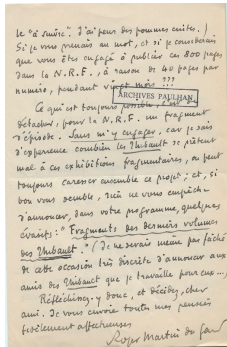 Le "à suivre", j'ai peur des pommes cuites !
Si je vous prenais au mot, et si je considérais
que vous êtes engagé à publier ces 800 pages
dans la N.R.F., à raison de 40 pages par
numéro, pendant vingt mois ???
ARCHIVES PAULHAN
Ce qui est toujours possible, c'est de
détacher, pour la N.R.F. un fragment
d'épisode. Sans m'y engager, car je sais
d'expérience combien les Thibault se prêtent
mal à ces exhibitions fragmentaires, on peut
toujours caresser ensemble ce projet ; et, si
bon vous semble, rien ne vous empêche
d'annoncer, dans votre programme, quelques
"Fragments des derniers volumes
des Thibault". (Je ne serais même pas fâché
de cette occasion très discrète d'annoncer aux
amis des Thibault que je travaille pour eux...)
Réfléchissez-y donc, et décidez, cher
ami. Je vous envoie toutes mes pensées
fidèlement affectueuses
Roger Martin du Gard